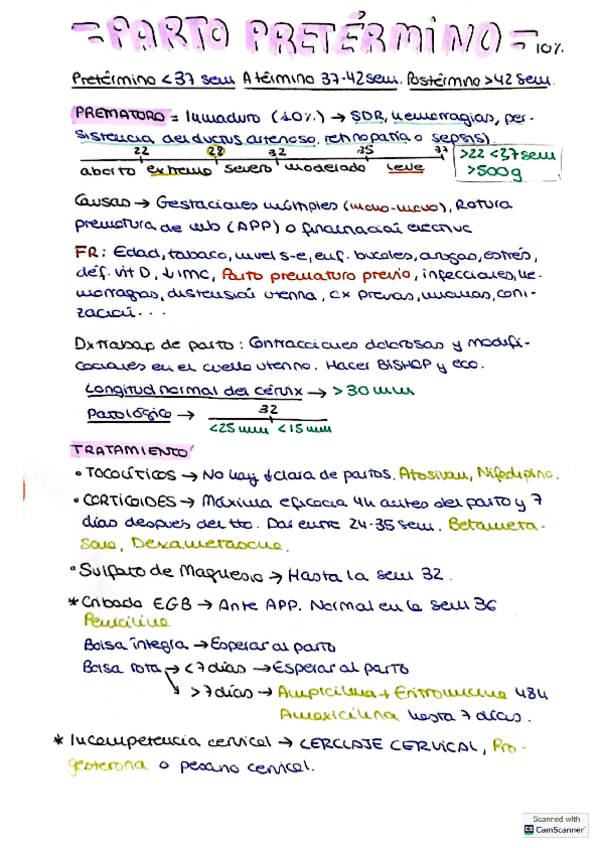 = PARTO PRETÉRMINO = 10%
Pretérmino < 37 sem A término 37-42 sem. Postérmino > 42 sem.
PREMATURO = Inmaduro (10%) → SDR, hemorragias, per-
sistencia del ductus arterioso, retinopatía o sepsis).
22 28 32 35 37
aborto extremo severo moderado leve
>22 <37 sem
>500g
Causas → Gestaciones múltiples (mono-mono), Rotura
prematura de mb (APP) o finalización electiva
FR: Edad, tabaco, nivel s-e, enf. bucales, drogas, estrés,
déf. vit D, ↓IMC, Parto prematuro previo, infecciones, he-
morragias, distensión uterina, cx previas, miomas, coni-
zación...
Dx trabajo de parto: Contracciones dolorosas y modifi-
caciones en el cuello uterino. Hacer BISHOP y eco.
Longitud normal del cérvix → >30 mm
Patológico → 32
<25 mm <15 mm
TRATAMIENTO
• TOCOLÍTICOS → No hay ↓clara de partos. Atosivan, Nifedipino.
• CORTICOIDES → Máxima eficacia 4h antes del parto y 7
días después del tto. Dar entre 24-35 sem. Betameta-
sona, Dexametasona.
• Sulfato de Magnesio → Hasta la sem 32.
* Cribado EGB → Ante APP. Normal en la sem 36
Penicilina
Bolsa íntegra → Esperar al parto
Bolsa rota → <7 días → Esperar al parto
> 7 días → Ampicilina + Eritromicina 48h
Amoxicilina hasta 7 días.
* Incompetencia cervical → CERCLAJE CERVICAL, Pro-
gesterona o pesario cervical.
Scanned with
CS CamScanner